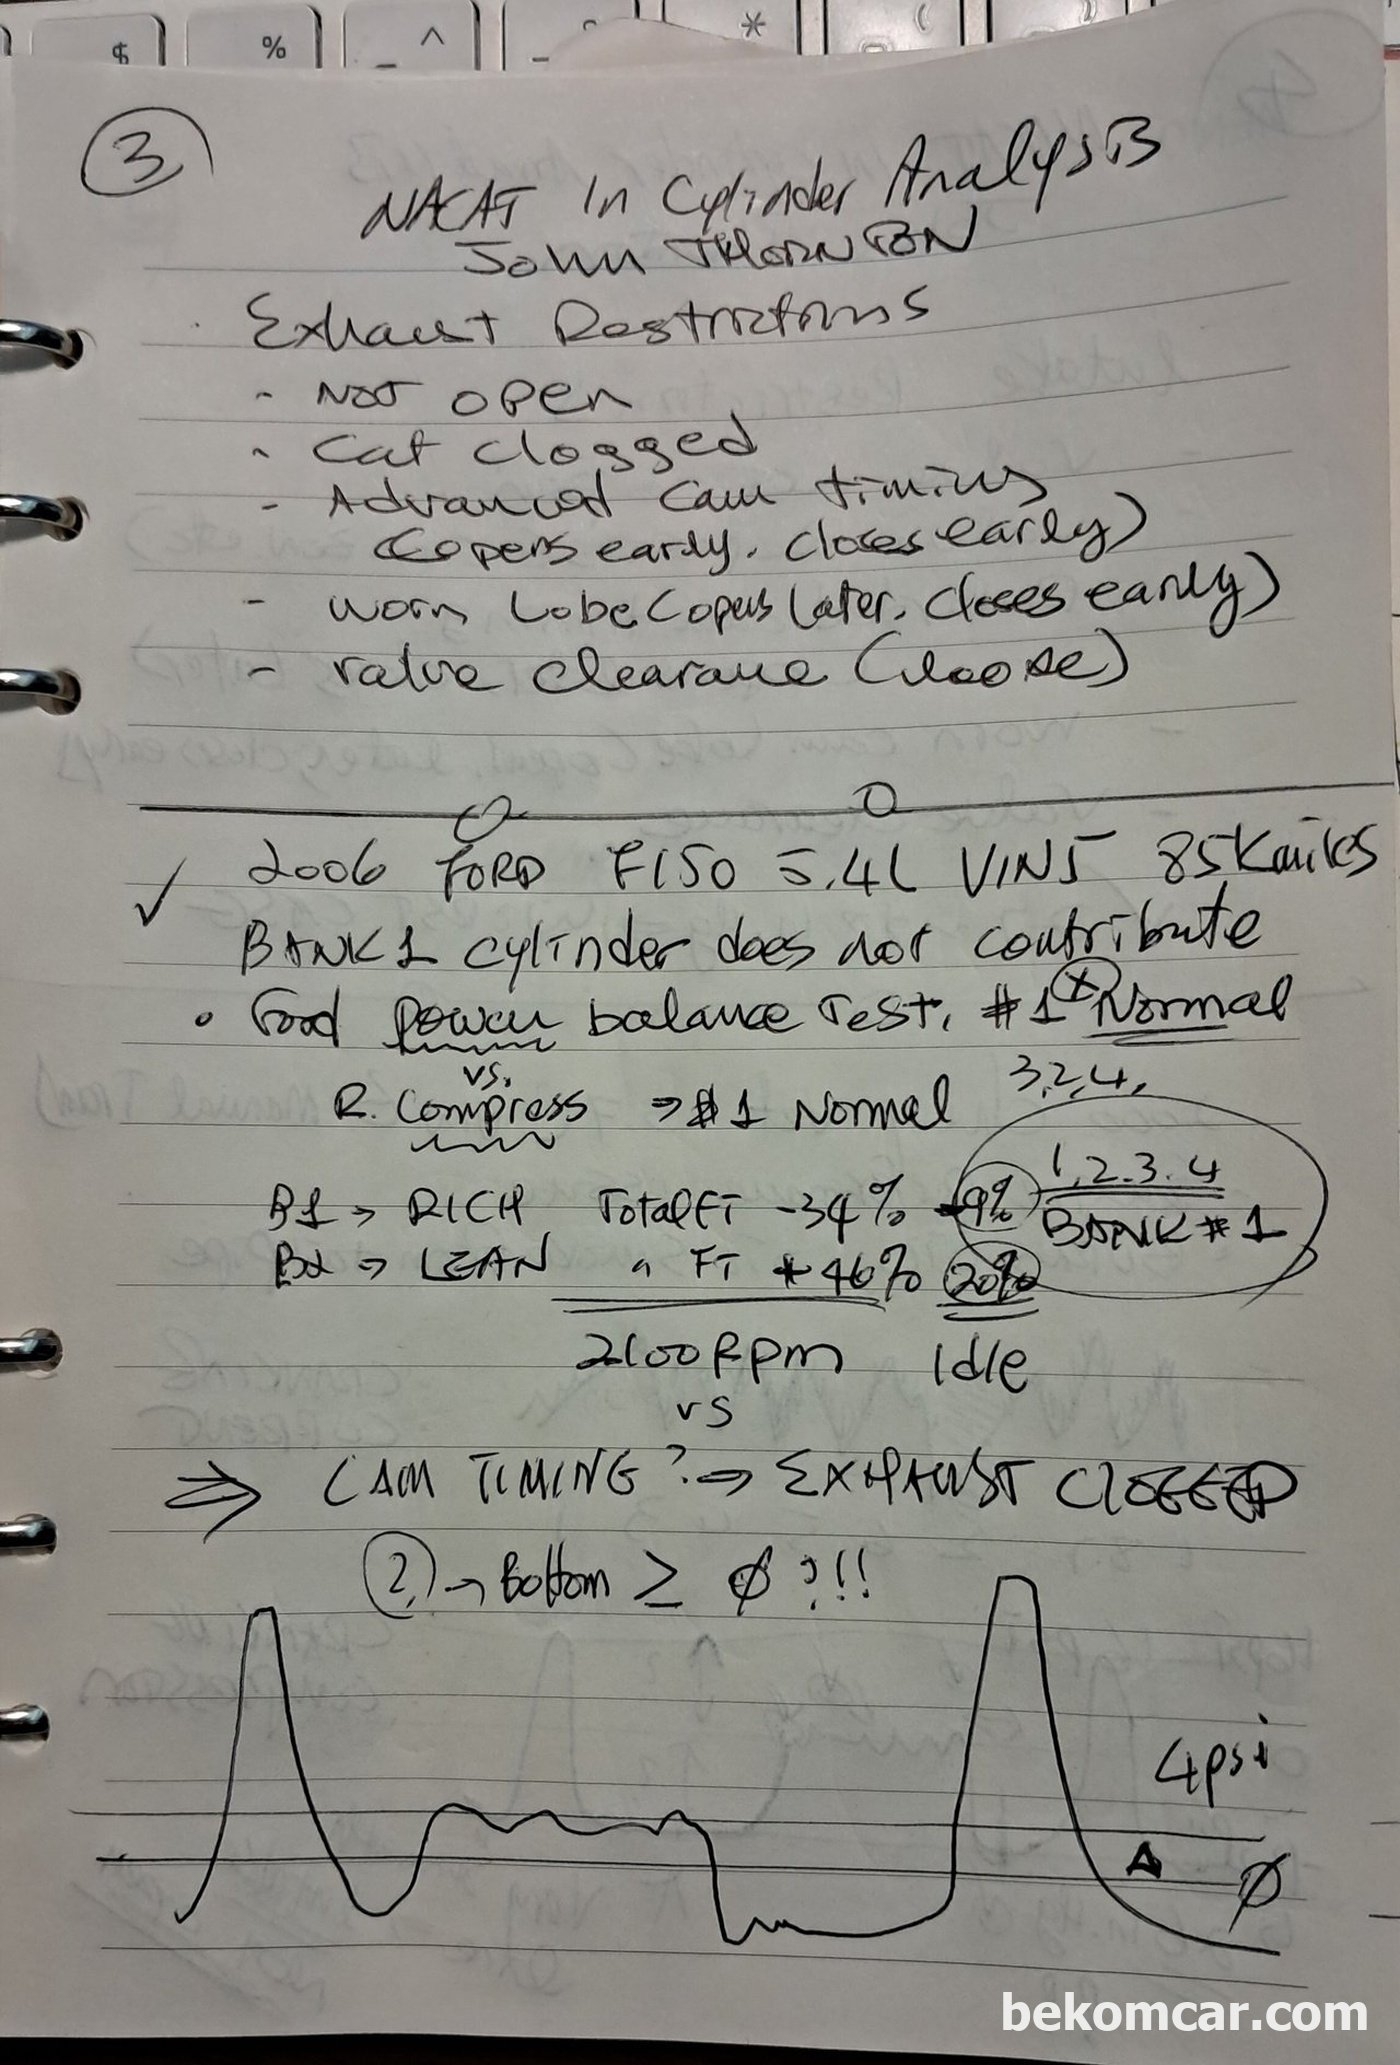 $ % ^ *
3
NACAT In Cylinder Analysis
John THORNTON
Exhaust Restrictions
- Not open
- Cat clogged
- Advanced Cam timing
(opens early, closes early)
- worn Lobe (opens later, closes early)
- valve clearance (loose)
✓ 2006 FORD F150 5.4L VIN5 85K miles
BANK1 cylinder does not contribute
• Ford power balance Test, #1 Normal
vs. 3,2,4,
R. Compress → #1 Normal
1,2.3.4
B1 → RICH Total FT -34% -9% BANK #1
B2 → LEAN " FT +46% 20%
2100 Rpm Idle
vs
⇒ CAM TIMING? ⇒ EXHAUST CLOGGED
2, → Bottom ≥ Ø ?!!
4psi
Δ Ø
bekomcar.com